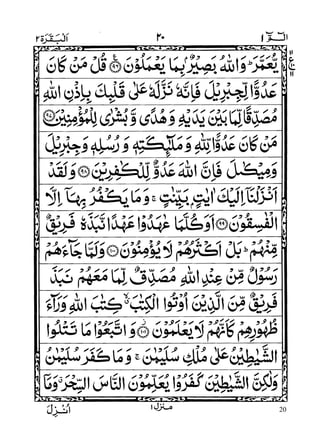 البقرة ٢ ٢٠ الٓمّٓ ١
يُّعَمَّرَ ؕ وَاللّٰهُ بَصِيْرٌۢ بِمَا يَعْمَلُوْنَ ﴿۹۶﴾ قُلْ مَنْ كَانَ
عَدُوًّا لِّجِبْرِيْلَ فَاِنَّهٗ نَزَّلَهٗ عَلٰى قَلْبِكَ بِاِذْنِ اللّٰهِ
مُصَدِّقًا لِّمَا بَيْنَ يَدَيْهِ وَهُدًى وَّبُشْرٰى لِلْمُؤْمِنِيْنَ ﴿۹۷﴾
مَنْ كَانَ عَدُوًّا لِّلّٰهِ وَمَلٰٓئِكَتِهٖ وَرُسُلِهٖ وَجِبْرِيْلَ
وَمِيْكٰىلَ فَاِنَّ اللّٰهَ عَدُوٌّ لِّلْكٰفِرِيْنَ ﴿۹۸﴾ وَلَقَدْ
اَنْزَلْنَاۤ اِلَيْكَ اٰيٰتٍۭ بَيِّنٰتٍ ۚ وَمَا يَكْفُرُ بِهَاۤ اِلَّا
الْفٰسِقُوْنَ ﴿۹۹﴾ اَوَكُلَّمَا عٰهَدُوْا عَهْدًا نَّبَذَهٗ فَرِيْقٌ
مِّنْهُمْ ؕ بَلْ اَكْثَرُهُمْ لَا يُؤْمِنُوْنَ ﴿۱۰۰﴾ وَلَمَّا جَآءَهُمْ
رَسُوْلٌ مِّنْ عِنْدِ اللّٰهِ مُصَدِّقٌ لِّمَا مَعَهُمْ نَبَذَ
فَرِيْقٌ مِّنَ الَّذِيْنَ اُوْتُوا الْكِتٰبَ ۙ كِتٰبَ اللّٰهِ وَرَآءَ
ظُهُوْرِهِمْ كَاَنَّهُمْ لَا يَعْلَمُوْنَ ﴿۱۰۱﴾ وَاتَّبَعُوْا مَا تَتْلُوا
الشَّيٰطِيْنُ عَلٰى مُلْكِ سُلَيْمٰنَ ۚ وَمَا كَفَرَ سُلَيْمٰنُ
وَلٰكِنَّ الشَّيٰطِيْنَ كَفَرُوْا يُعَلِّمُوْنَ النَّاسَ السِّحْرَ ۗ وَمَاۤ
اُنْزِلَ منزل ١ 20